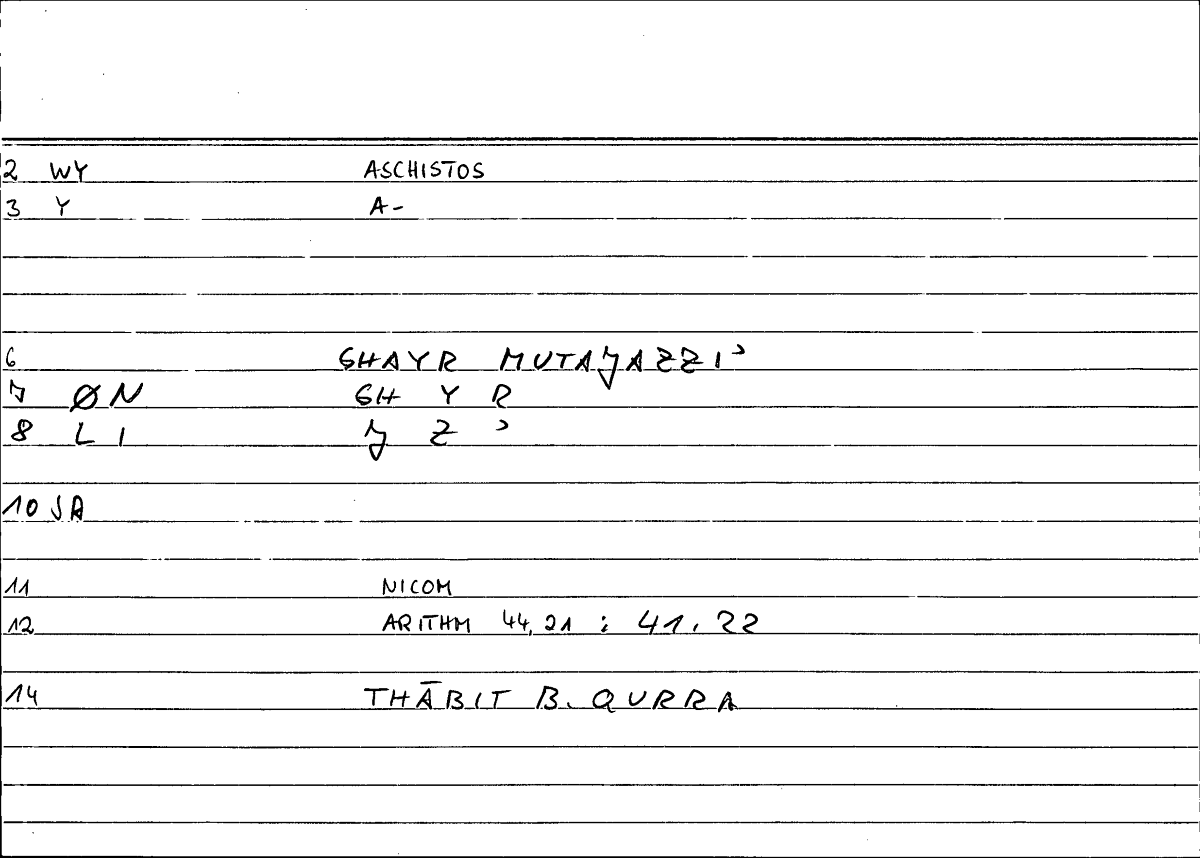 2 WY ASCHISTOS
3 Y A-
6 GHAYR MUTAJAZZIʾ
7 ØN GH Y R
8 LI J Z ʾ
10 JA
11 NICOM
12 ARITHM 44,21 : 41.22
14 THĀBIT B. QURRA